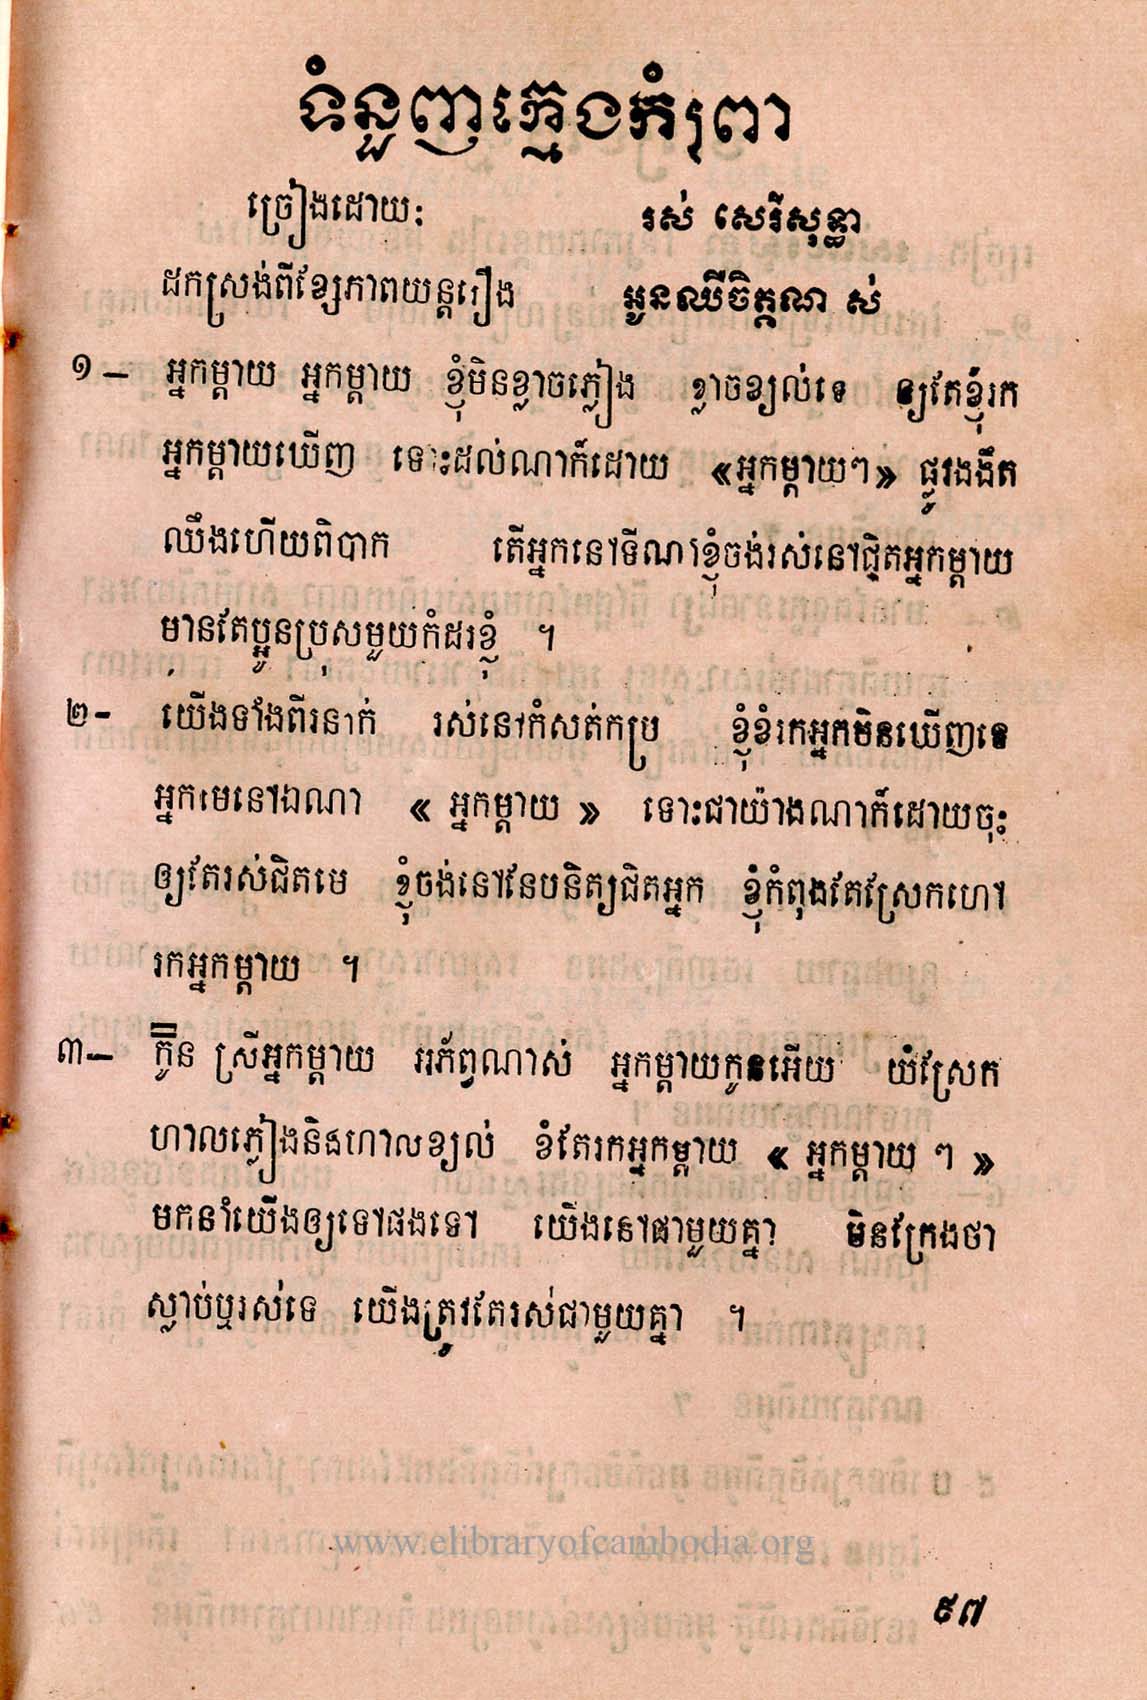 ទំនួញក្មេងកំព្រា
ច្រៀងដោយ: រស់ សេរីសុទ្ធា
ដកស្រង់ពីខ្សែភាពយន្តរឿង អូនឈឺចិត្តណាស់
១ – អ្នកម្តាយ អ្នកម្តាយ ខ្ញុំមិនខ្លាចភ្លៀង ខ្លាចខ្យល់ទេ ឲ្យតែខ្ញុំរក
អ្នកម្តាយឃើញ ទោះដល់ណាក៏ដោយ «អ្នកម្តាយៗ» ផ្លូវងងឹត
ឈឹងហើយពិបាក តើអ្នកនៅទីណាខ្ញុំចង់រស់នៅជិតអ្នកម្តាយ
មានតែប្អូនប្រុសមួយកំដរខ្ញុំ ។
២ - យើងទាំងពីរនាក់ រស់នៅកំសត់កប្រ ខ្ញុំខំរកអ្នកមិនឃើញទេ
អ្នកមេនៅឯណា « អ្នកម្តាយ » ទោះជាយ៉ាងណាក៏ដោយចុះ
ឲ្យតែរស់ជិតមេ ខ្ញុំចង់នៅនែបនិត្យជិតអ្នក ខ្ញុំកំពុងតែស្រែកហៅ
រកអ្នកម្តាយ ។
៣ – កូន ស្រីអ្នកម្តាយ អភ័ព្វណាស់ អ្នកម្តាយកូនអើយ យំស្រែក
ហាលភ្លៀងនិងហាលខ្យល់ ខំតែរកអ្នកម្តាយ « អ្នកម្តាយ ៗ »
មកនាំយើងឲ្យទៅផងទៅ យើងនៅជាមួយគ្នា មិនក្រែងថា
ស្លាប់ឬរស់ទេ យើងត្រូវតែរស់ជាមួយគ្នា ។
www.elibraryofcambodia.org
៩៧